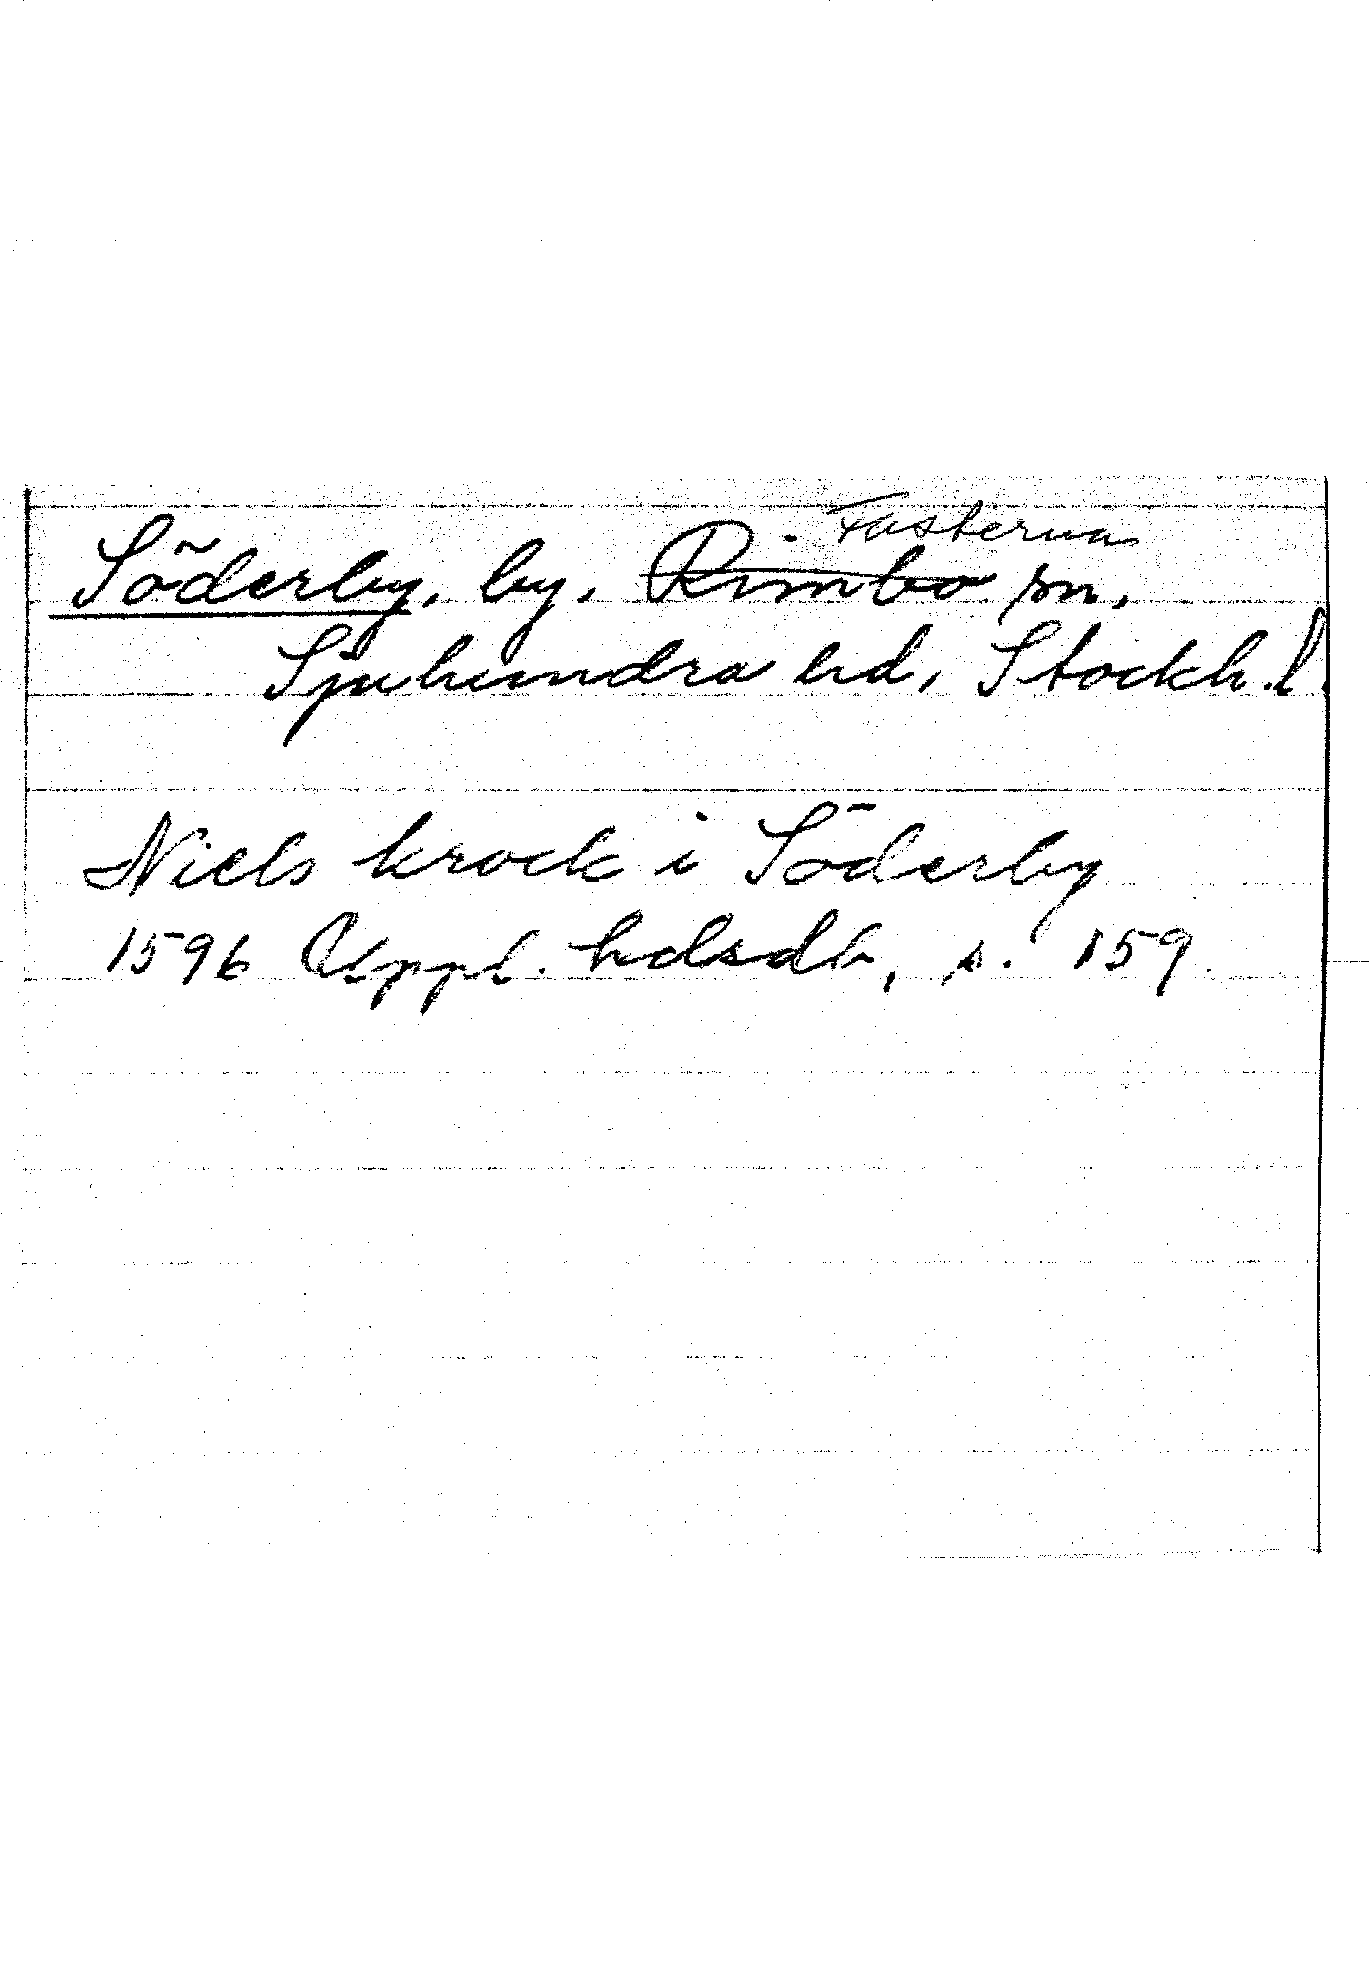 Fasterna
Söderby, by, Rimbo sn,
Sjuhundra hd, Stockh. l.
Niels krock i Söderby
1596 Uppl. hdsdb, s. 159.